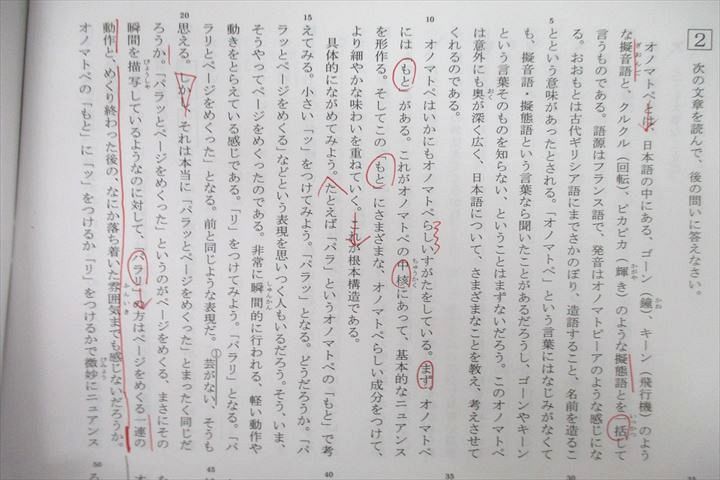 2 次の文章を読んで、後の問いに答えなさい。
オノマトペとは、日本語の中にある、ゴーン（鐘）、キーン（飛行機）のよう
な擬音語と、クルクル（回転）、ピカピカ（輝き）のような擬態語とを一括して
言うものである。語源はフランス語で、発音はオノマトピーアのような感じにな
る。おおもとは古代ギリシア語にまでさかのぼり、造語すること、名前を造るこ
とという意味があったとされる。「オノマトペ」という言葉にはなじみがなくて
も、擬音語・擬態語という言葉なら聞いたことがあるだろうし、ゴーンやキーン
という言葉そのものを知らない、ということはまずないだろう。このオノマトペ
は意外にも奥が深く広く、日本語について、さまざまなことを教え、考えさせて
くれるのである。
オノマトペはいかにもオノマトペらしいすがたをしている。まず、オノマトペ
には「もと」がある。これがオノマトペの中核にあって、基本的なニュアンス
を形作る。そしてこの「もと」にさまざまな、オノマトペらしい成分をつけて、
より細やかな味わいを重ねていく。これが根本構造である。
具体的にながめてみよう。たとえば「パラ」というオノマトペの「もと」で考
えてみる。小さい「ッ」をつけてみよう。「パラッ」となる。どうだろうか。「パ
ラッとページをめくる」などという表現を思いつく人もいるだろう。そう、いま、
そうやってページをめくったのである。非常に瞬間的に行われる、軽い動作や
動きをとらえている感じである。「リ」をつけてみよう。「パラリ」となる。「パ
ラリとページをめくった」となる。前と同じような表現だ。①芸がない、そうも
思える。しかし、それは本当に「パラッとページをめくった」とまったく同じだ
ろうか。「パラッとページをめくった」というのがページをめくる、まさにその
瞬間を描写しているようなのに対して、「パラリ」の方はページをめくる一連の
動作と、めくり終わった後の、なにか落ち着いた雰囲気までも感じないだろうか。
オノマトペの「もと」に「ッ」をつけるか「リ」をつけるかで微妙にニュアンス